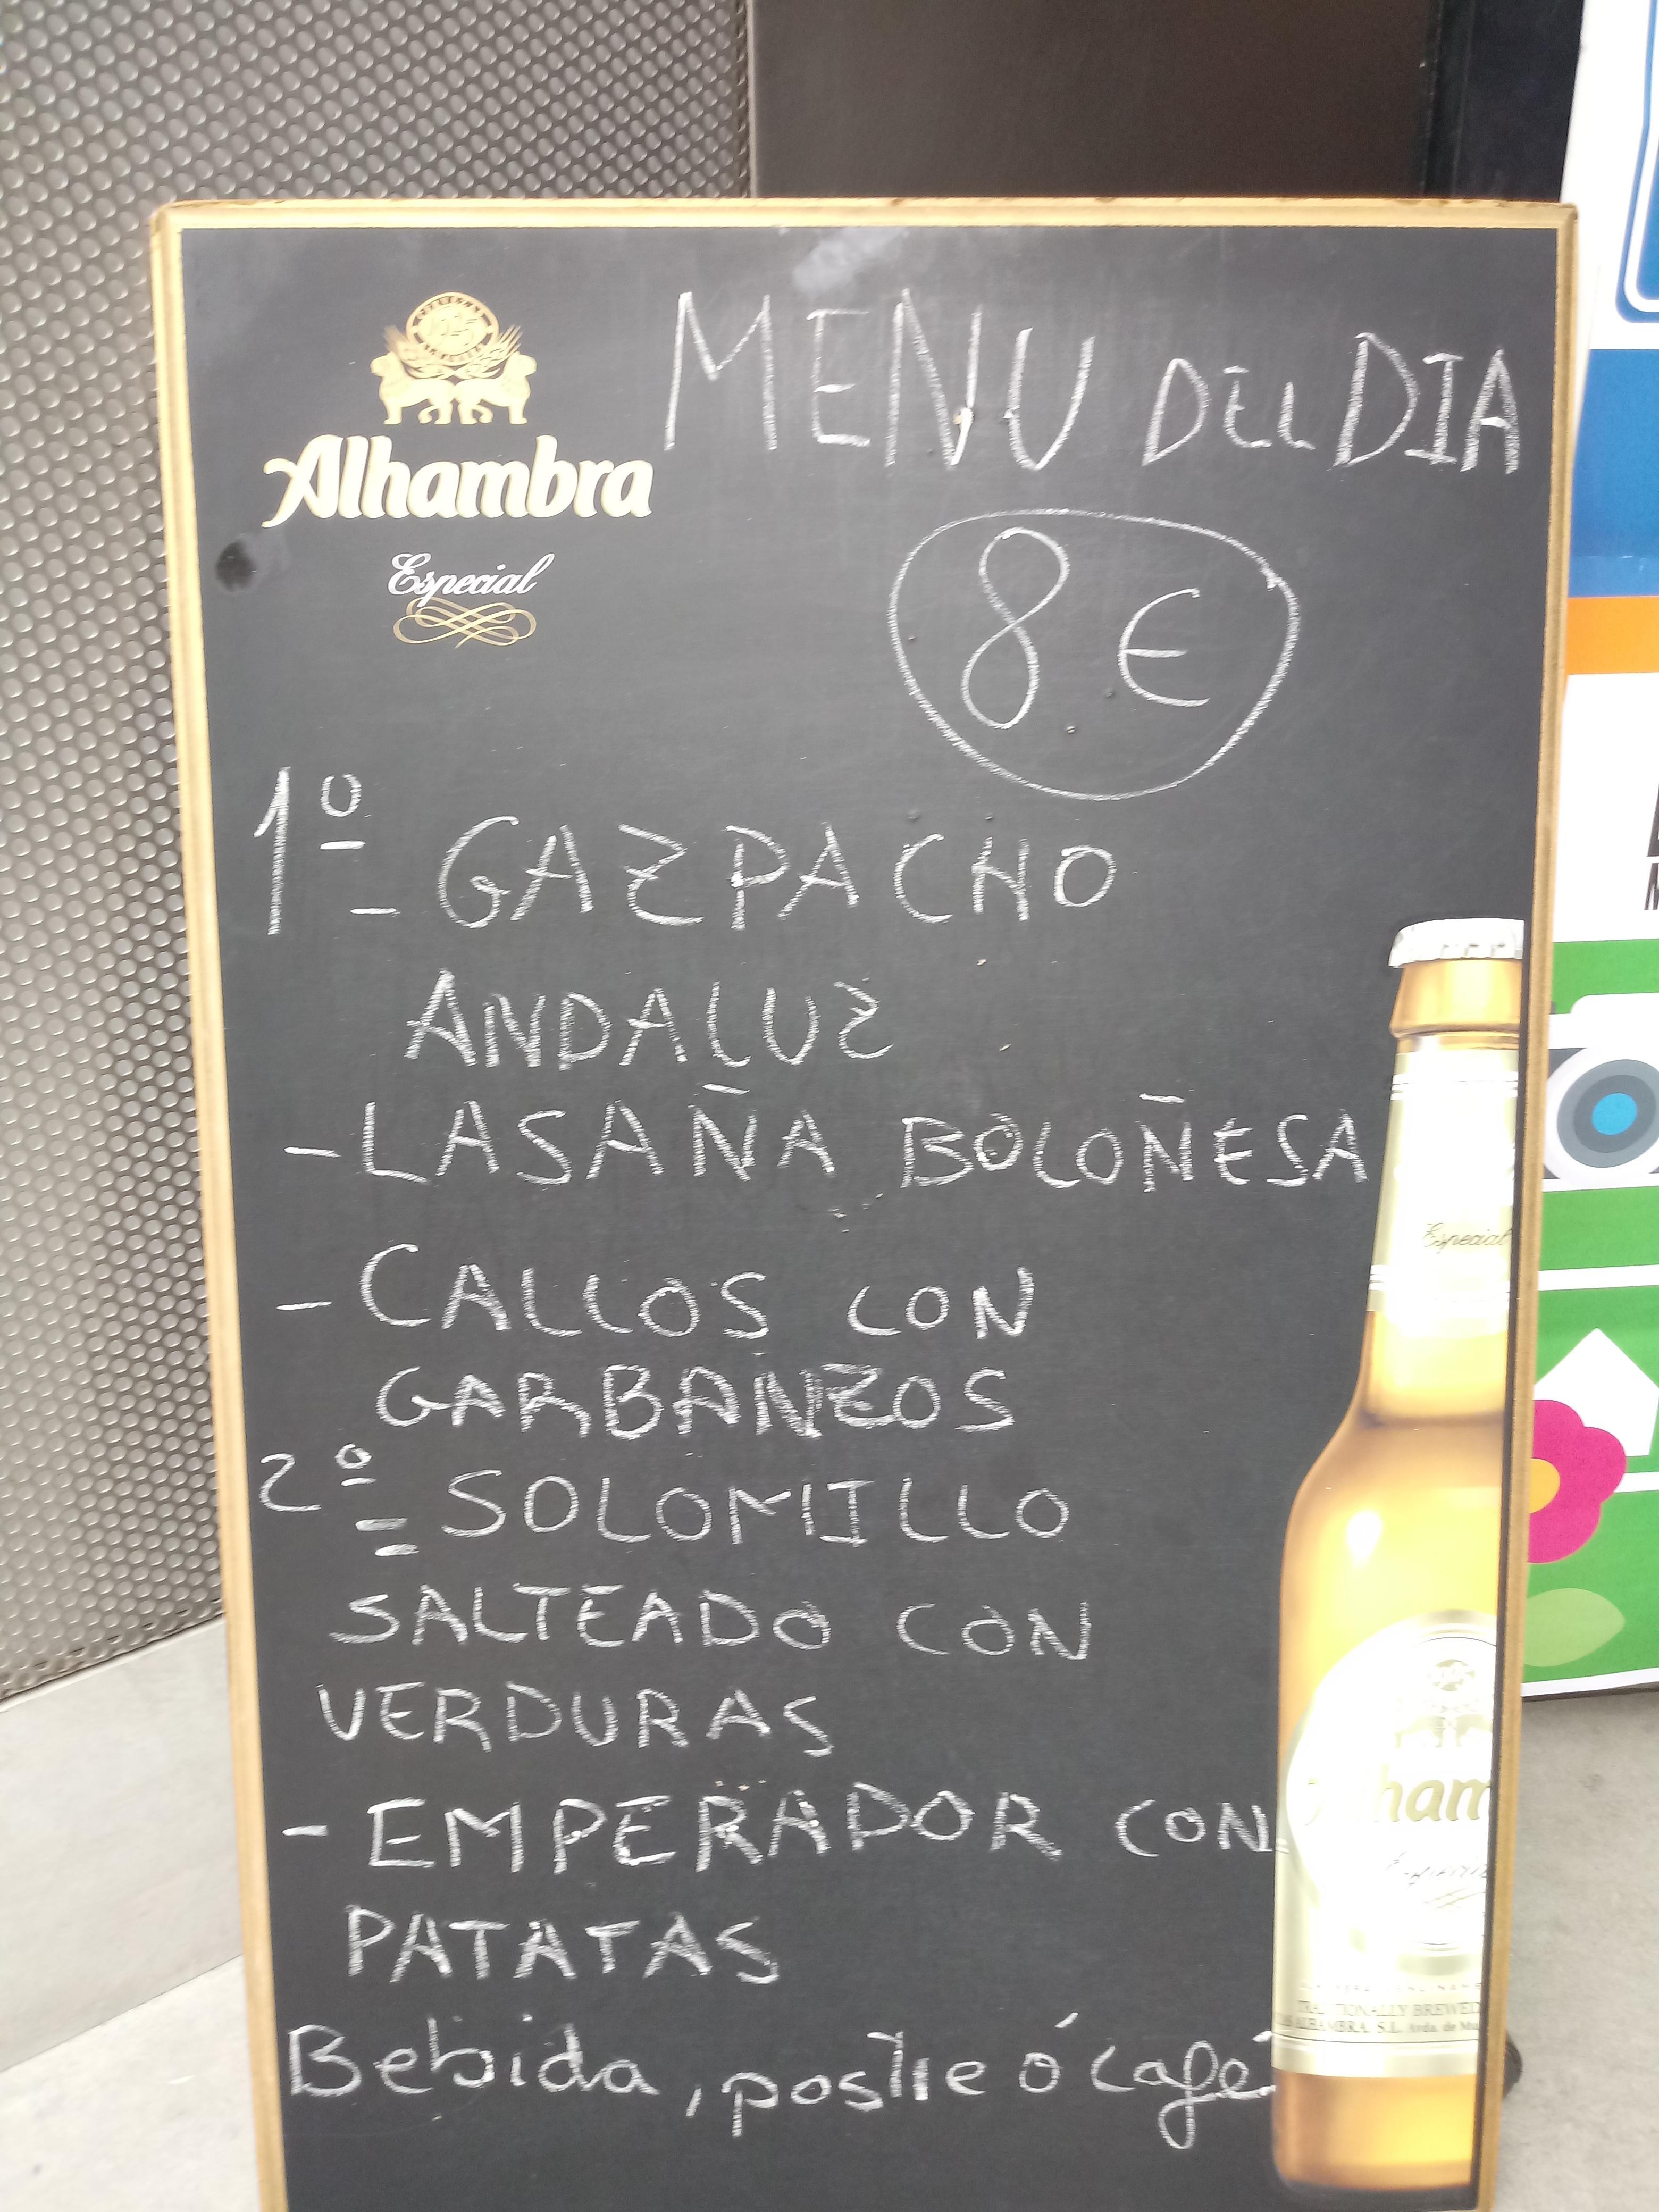 Alhambra
Especial
MENU DEL DIA
8 €
1º - GAZPACHO
ANDALUZ
- LASAÑA BOLOÑESA
- CALLOS CON
GARBANZOS
2º - SOLOMILLO
SALTEADO CON
VERDURAS
- EMPERADOR CON
PATATAS
Bebida, postre ó café
Especial
ham
TRADITIONALLY BREWED
ALHAMBRA, S.L. Avda. de